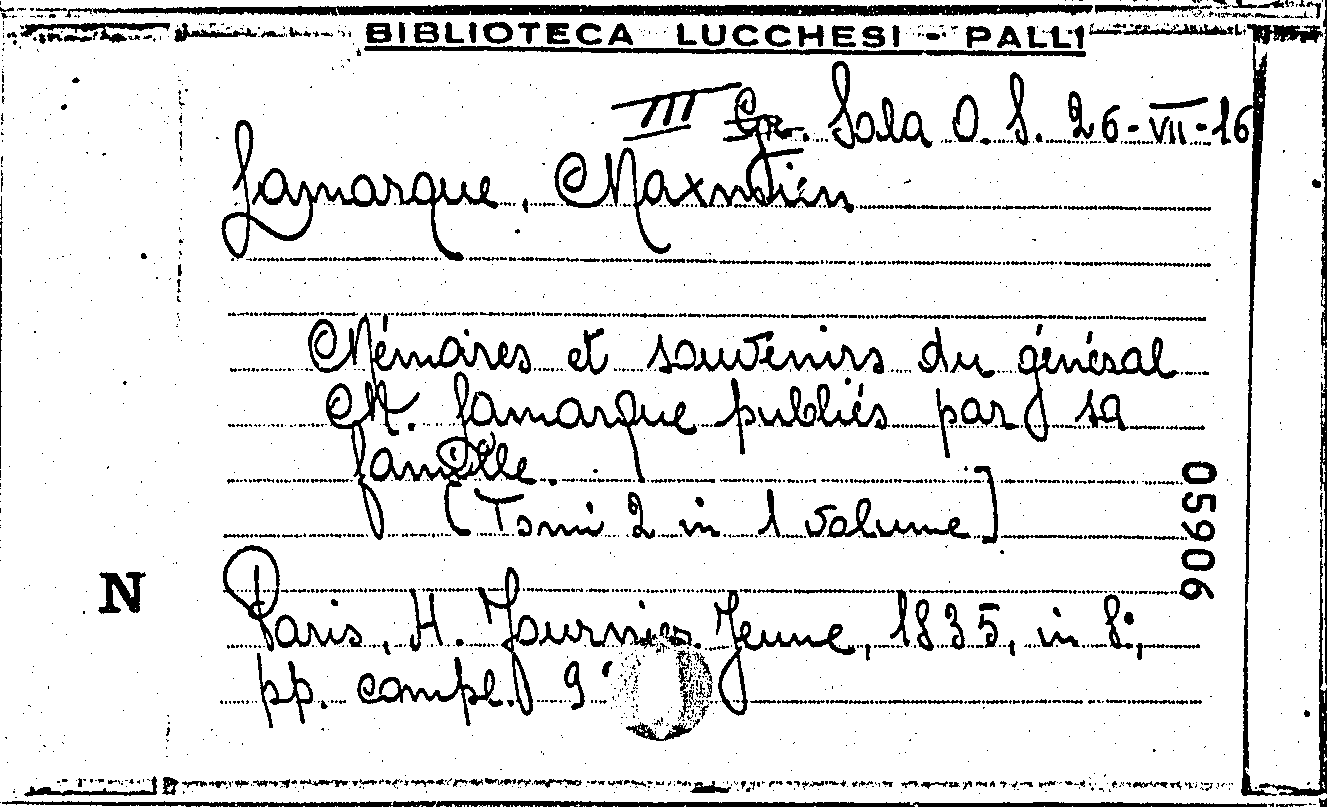 BIBLIOTECA LUCCHESI - PALLI
III Gr. Sala O. S. 26-VII-16
Lamarque, Maxmilien
Mémoires et souvenirs du général
M. Lamarque publiés par sa
famille.
[Tomi 2 in 1 volume]
05906
N
Paris, H. Fournier Jeune, 1835, in 8°,
pp. compl. 9